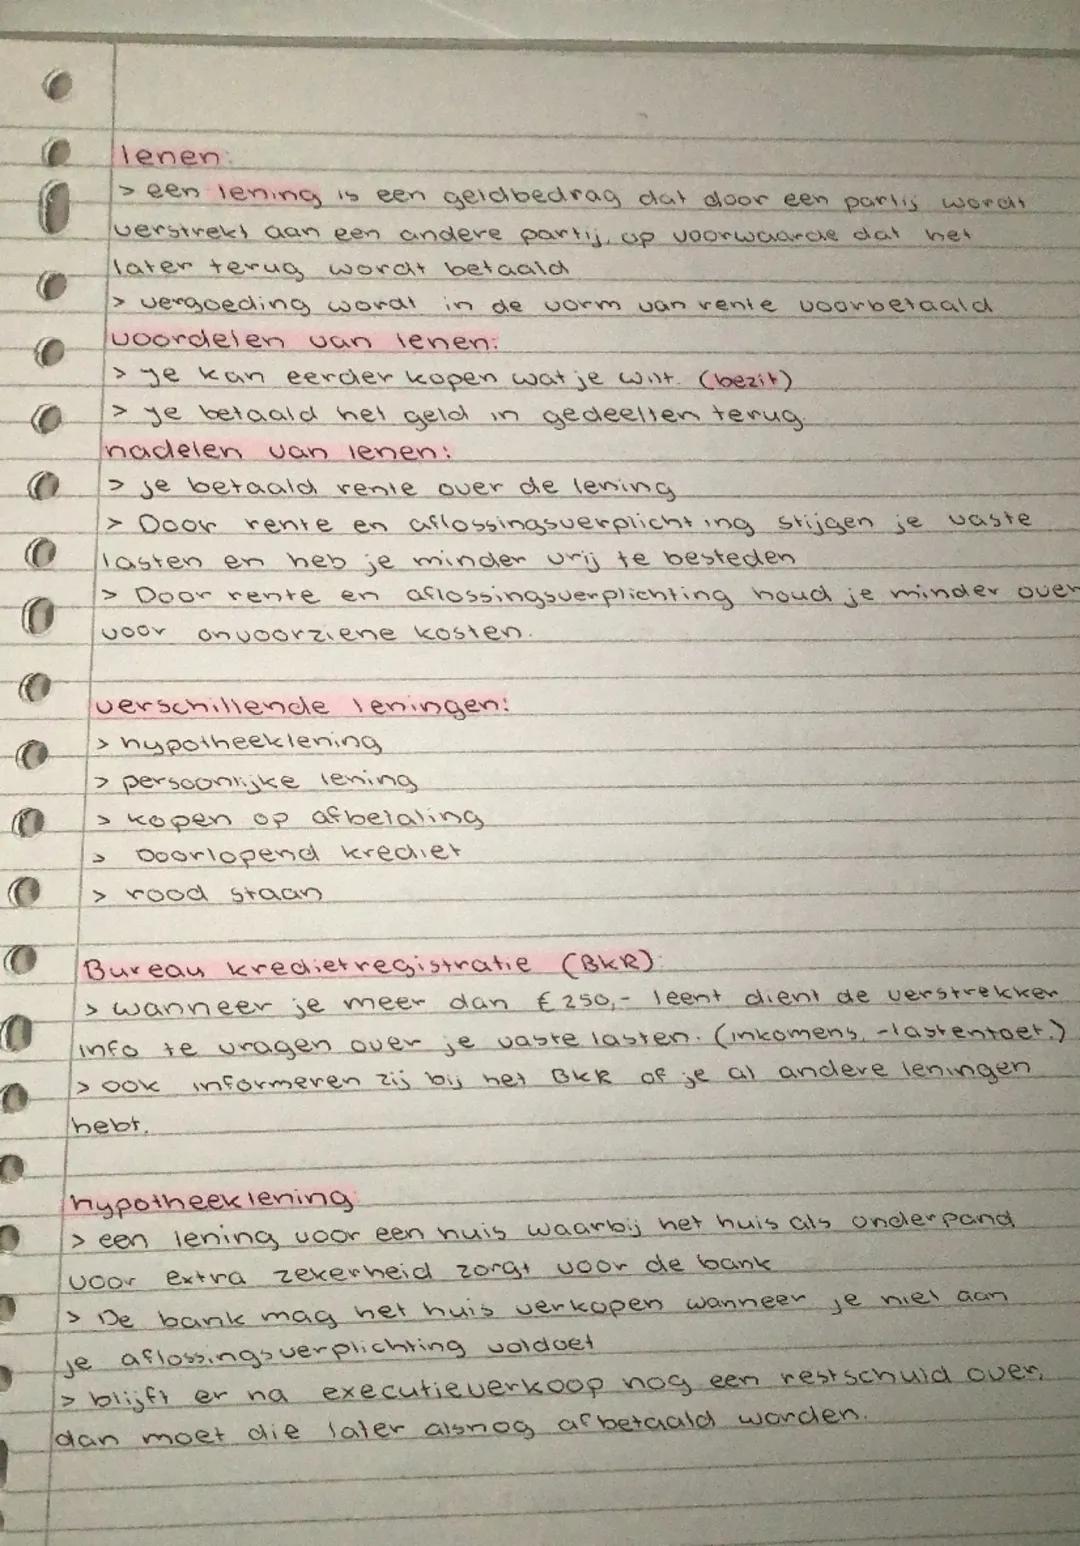 lenen:
> een lening is een geldbedrag dat door een partij wordt
verstrekt aan een andere partij, op voorwaarde dat het
later terug wordt betaald
> vergoeding wordt in de vorm van rente voorbetaald
voordelen van lenen:
> je kan eerder kopen wat je wilt. (bezit)
> je betaald het geld in gedeelten terug.
nadelen van lenen:
> je betaald rente over de lening
> Door rente en aflossingsverplichting stijgen je vaste
lasten en heb je minder vrij te besteden
> Door rente en aflossingsverplichting houd je minder over
voor onvoorziene kosten.
verschillende leningen:
> hypotheeklening
> persoonlijke lening
> kopen op afbetaling
> Doorlopend krediet
> rood staan
Bureau kredietregistratie (BKR):
> wanneer je meer dan €250,- leent dient de verstrekker
info te vragen over je vaste lasten. (inkomens, -lastentoet.)
> ook informeren zij bij het BKR of je al andere leningen
hebt.
hypotheeklening:
> een lening voor een huis waarbij het huis als onderpand
voor extra zekerheid zorgt voor de bank
> De bank mag het huis verkopen wanneer je niet aan
je aflossingsverplichting voldoet
> blijft er na executieverkoop nog een restschuld over,
dan moet die later alsnog afbetaald worden.